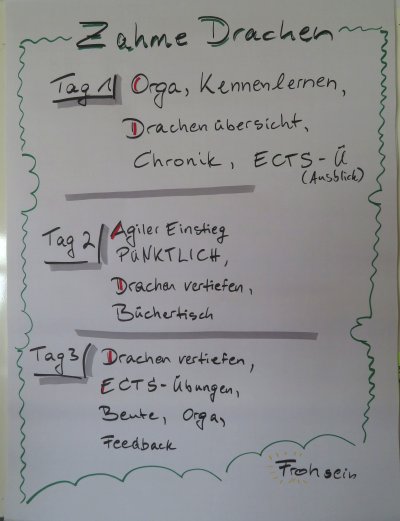 Zahme Drachen
Tag 1 Orga, Kennenlernen,
Drachenübersicht,
Chronik, ECTS-Ü
(Ausblick)
Tag 2 Agiler Einstieg
PÜNKTLICH,
Drachen vertiefen,
Büchertisch
Tag 3 Drachen vertiefen,
ECTS-Übungen,
Beute, Orga,
Feedback
Froh sein